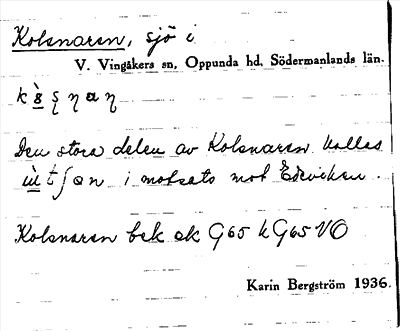 Kolsnaren, sjö i
V. Vingåkers sn, Oppunda hd, Södermanlands län.
Den stora delen av Kolsnaren kallas
i motsats mot Edeviken.
Kolsnaren bek ek G65 k G65 VO
Karin Bergström 1936.